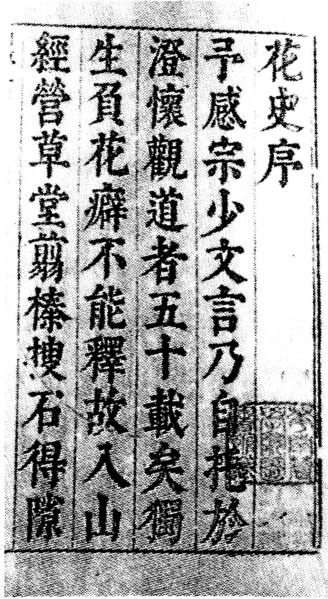 花史序
予感宗少文言乃自托於
澄懷觀道者五十載矣獨
生負花癖不能釋故入山
經營草堂翦榛搜石得隙